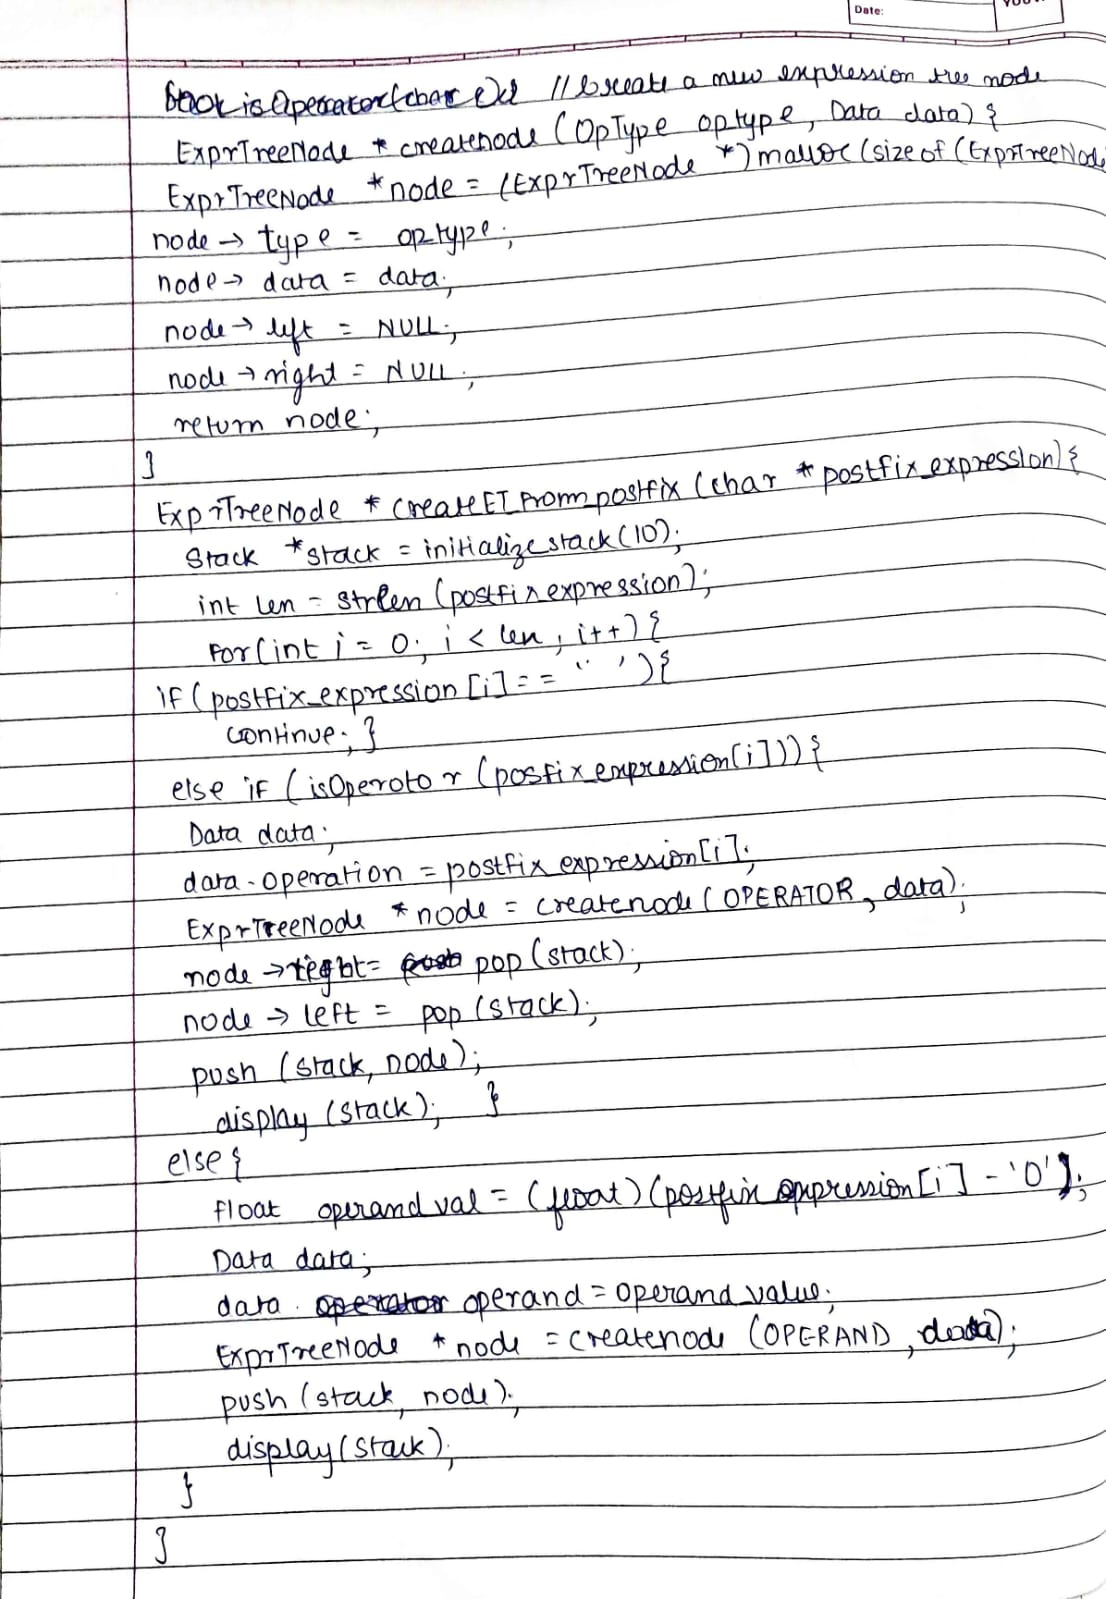 Date: YOUV
bool isOperator(char c){ // Create a new expression tree node
ExprTreeNode * createnode (OpType optype, Data data) {
ExprTreeNode *node = (ExprTreeNode *) malloc (sizeof (ExprTreeNode
node → type = optype;
node → data = data;
node → left = NULL;
node → right = NULL;
return node;
}
ExprTreeNode * createET_From_postfix (char * postfix_expression) {
Stack *stack = initializestack(10);
int len = strlen (postfixexpression);
For(int i = 0; i < len; i++) {
if (postfix_expression [i] == ' ') {
continue; }
else if (isOperotor (posfix_expression[i])) {
Data data;
data.operation = postfix_expression[i];
ExprTreeNode *node = createnode (OPERATOR, data);
node → right = pop (stack);
node → left = pop (stack);
push (stack, node);
display (stack); }
else {
float operand val = (float) (postfix_expression [i] - '0');
Data data;
data . operand = operand_value;
ExprTreeNode * node = createnode (OPERAND, data);
push (stack, node);
display (stack);
}
}